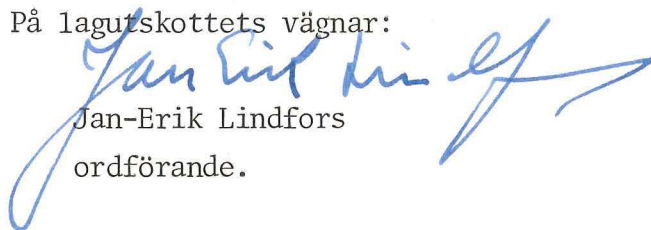 På lagutskottets vägnar:
Jan Erik Lindfors
Jan-Erik Lindfors
ordförande.